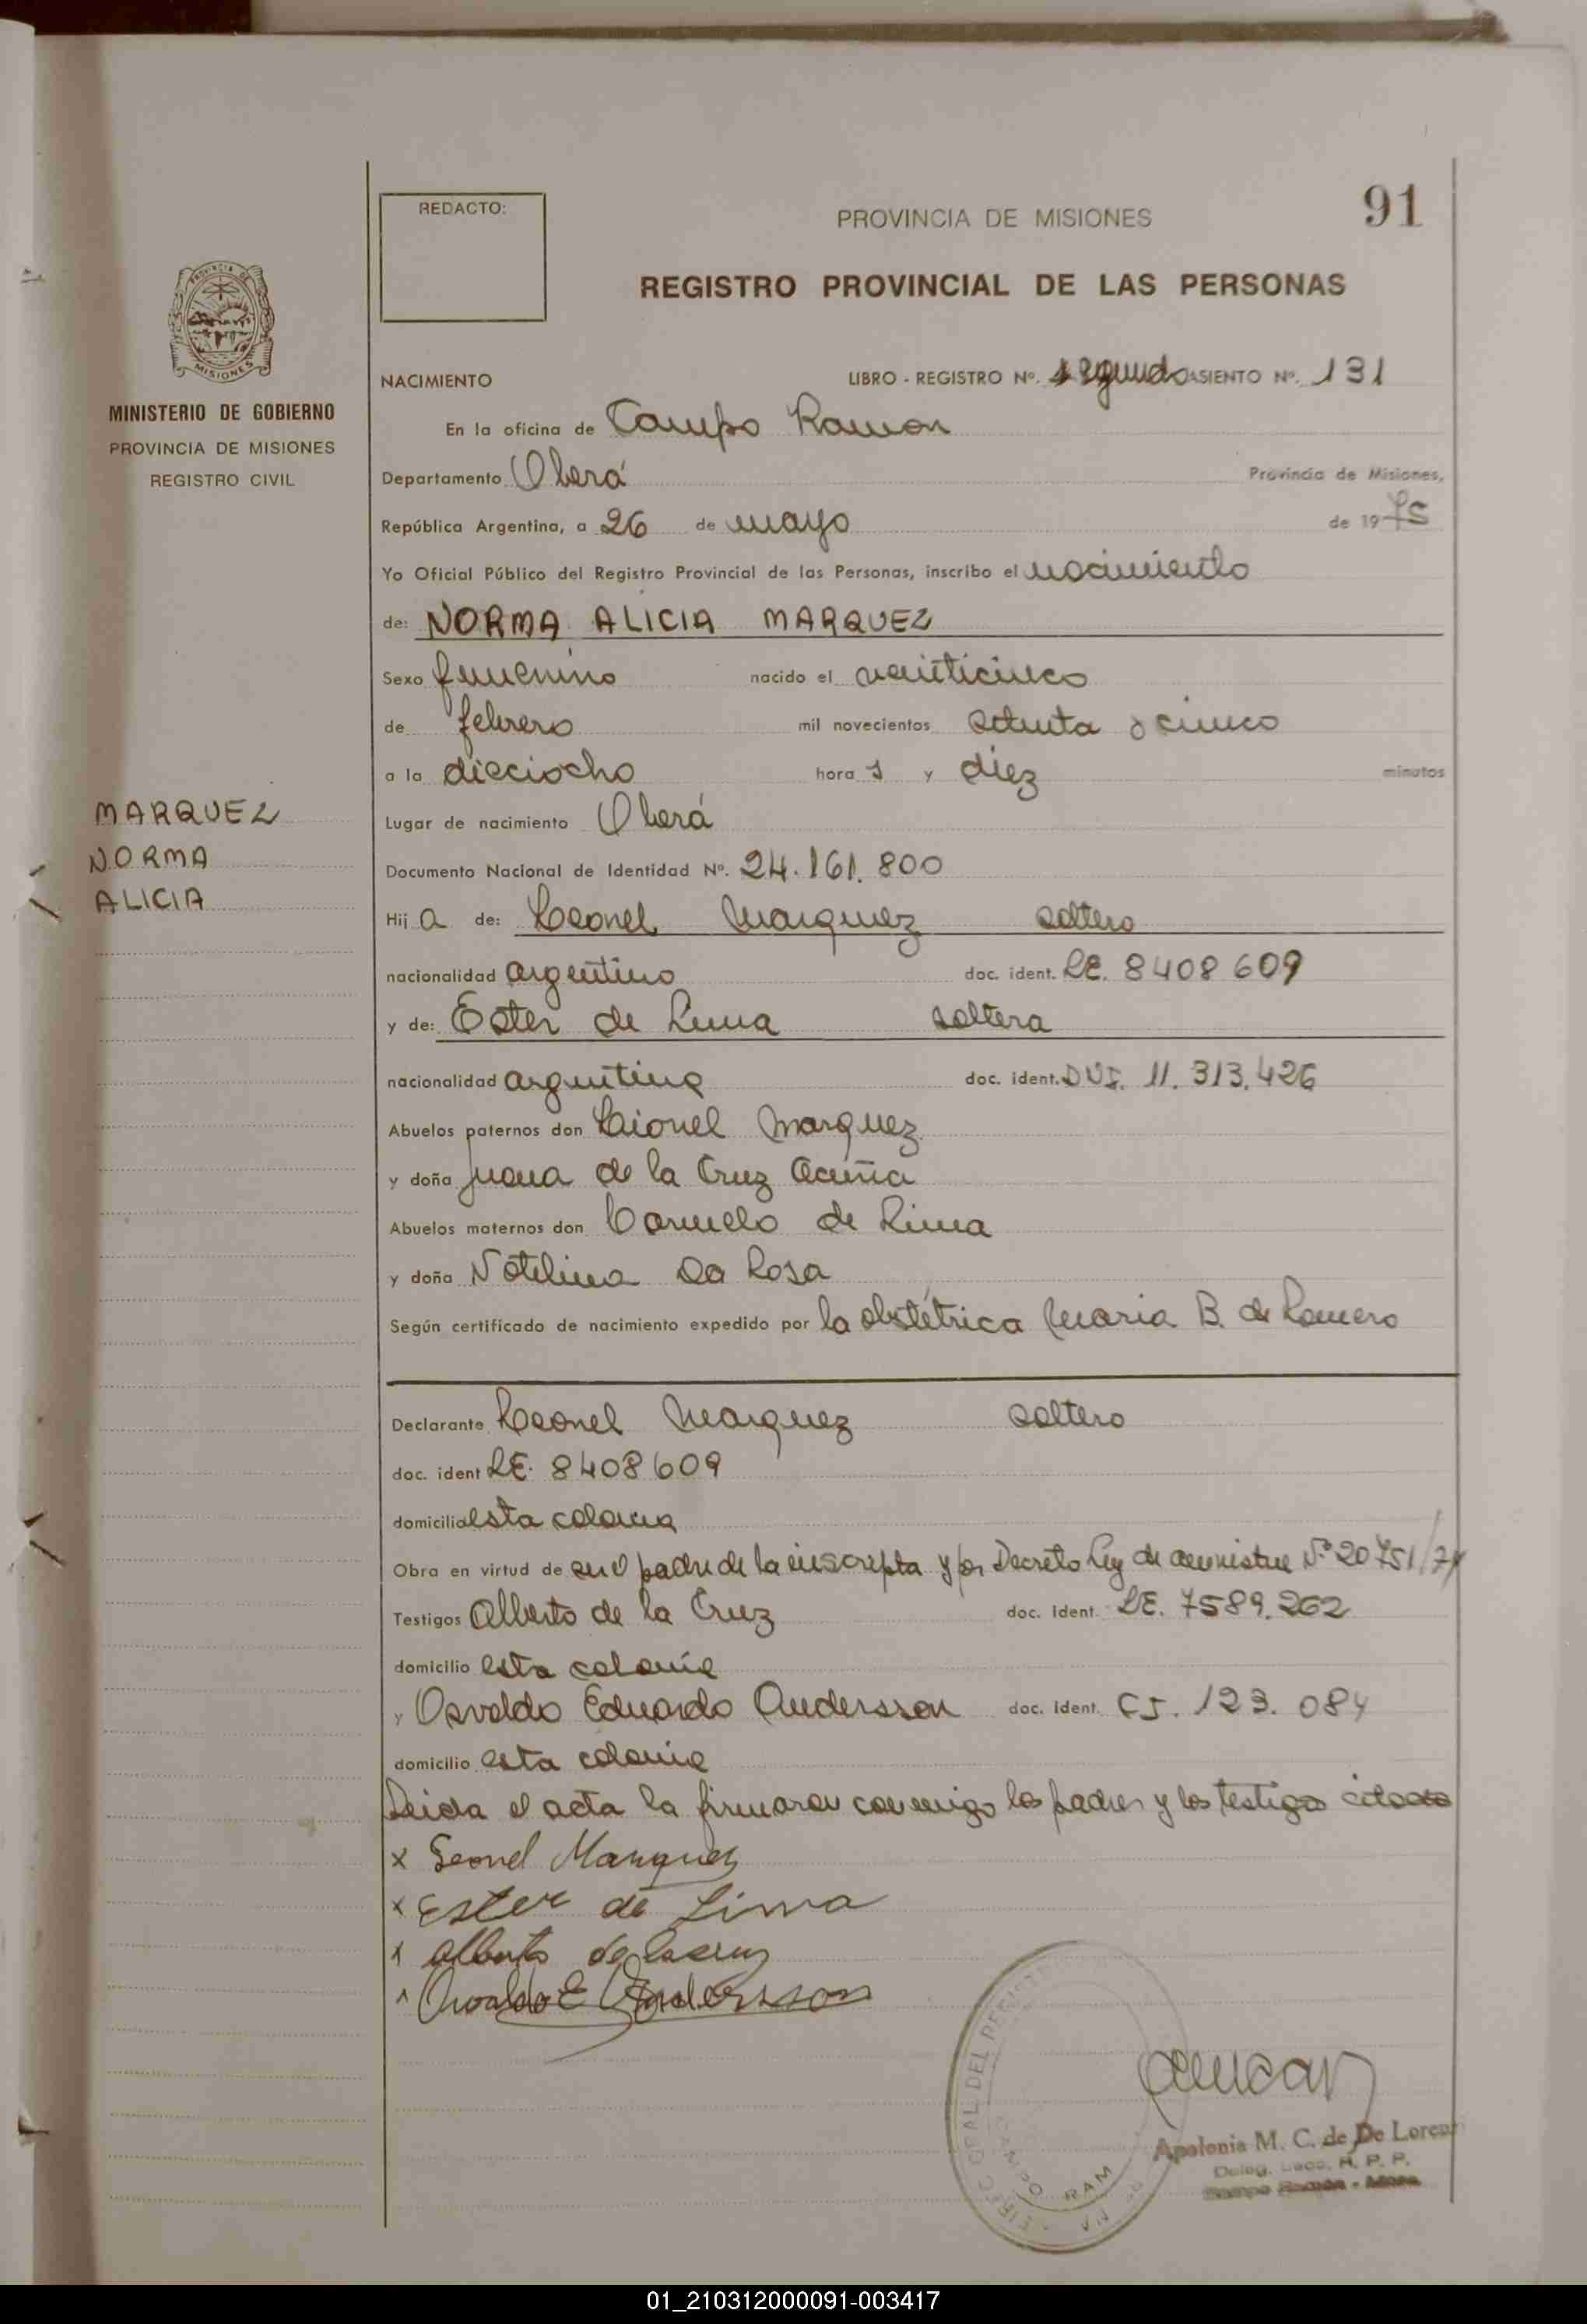 91
REDACTO:
PROVINCIA DE MISIONES
REGISTRO PROVINCIAL DE LAS PERSONAS
PROVINCIA DE
MISIONES
MINISTERIO DE GOBIERNO
PROVINCIA DE MISIONES
REGISTRO CIVIL
MARQUEZ
NORMA
ALICIA
NACIMIENTO LIBRO - REGISTRO Nº. segundo ASIENTO Nº. 131
En la oficina de Campo Ramon
Departamento Oberá Provincia de Misiones,
República Argentina, a 26 de mayo de 1975
Yo Oficial Público del Registro Provincial de las Personas, inscribo el nacimiento
de: NORMA ALICIA MARQUEZ
Sexo femenino nacido el veinticinco
de febrero mil novecientos setenta y cinco
a la dieciocho hora s y diez minutos
Lugar de nacimiento Oberá
Documento Nacional de Identidad Nº. 24.161.800
Hij a de: Leonel Marquez soltero
nacionalidad argentino doc. ident. LE. 8408609
y de: Ester de Lima soltera
nacionalidad argentina doc. ident. DNI. 11.313.426
Abuelos paternos don Lionel Marquez
y doña Juana de la Cruz Acuña
Abuelos maternos don Carmelo de Lima
y doña Da Rosa
Según certificado de nacimiento expedido por la obstétrica Maria B. de Romero
Declarante Leonel Marquez soltero
doc. ident LE. 8408609
domicilio esta colonia
Obra en virtud de ser el padre de la inscripta y por Decreto Ley de amnistia Nº 20751/74
Testigos Alberto de la Cruz doc. ident. LE. 7589.262
domicilio esta colonia
y Osvaldo Eduardo Andersson doc. ident. CI. 123.084
domicilio esta colonia
Leida el acta la firmaron conmigo los padres y los testigos citados
x Leonel Marquez
x Ester de Lima
x Alberto de lacruz
x Osvaldo E Andersson
GRAL DEL REGISTRO
CAMPO RAM
Apolonia M. C. de De Lorenz
Deleg. R. P. P.
Campo Ramón - Mnes
01_210312000091-003417